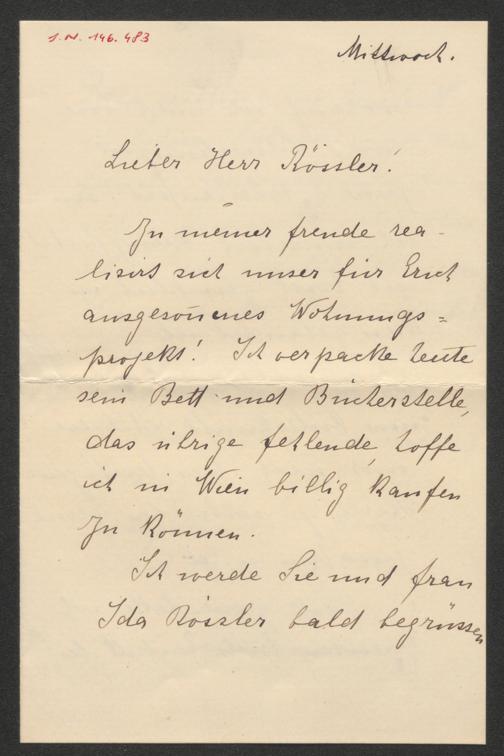 J.N. 146.483
Mittwoch.
Lieber Herr Rössler!
Zu meiner freude rea-
lisirt sich unser für Erich
ausgesonnenes Wohnungs=
projekt! Ich verpacke heute
sein Bett und Bücherstelle,
das übrige fehlende, hoffe
ich in Wien billig kaufen
zu können.
Ich werde Sie und frau
Ida Rössler bald begrüssen